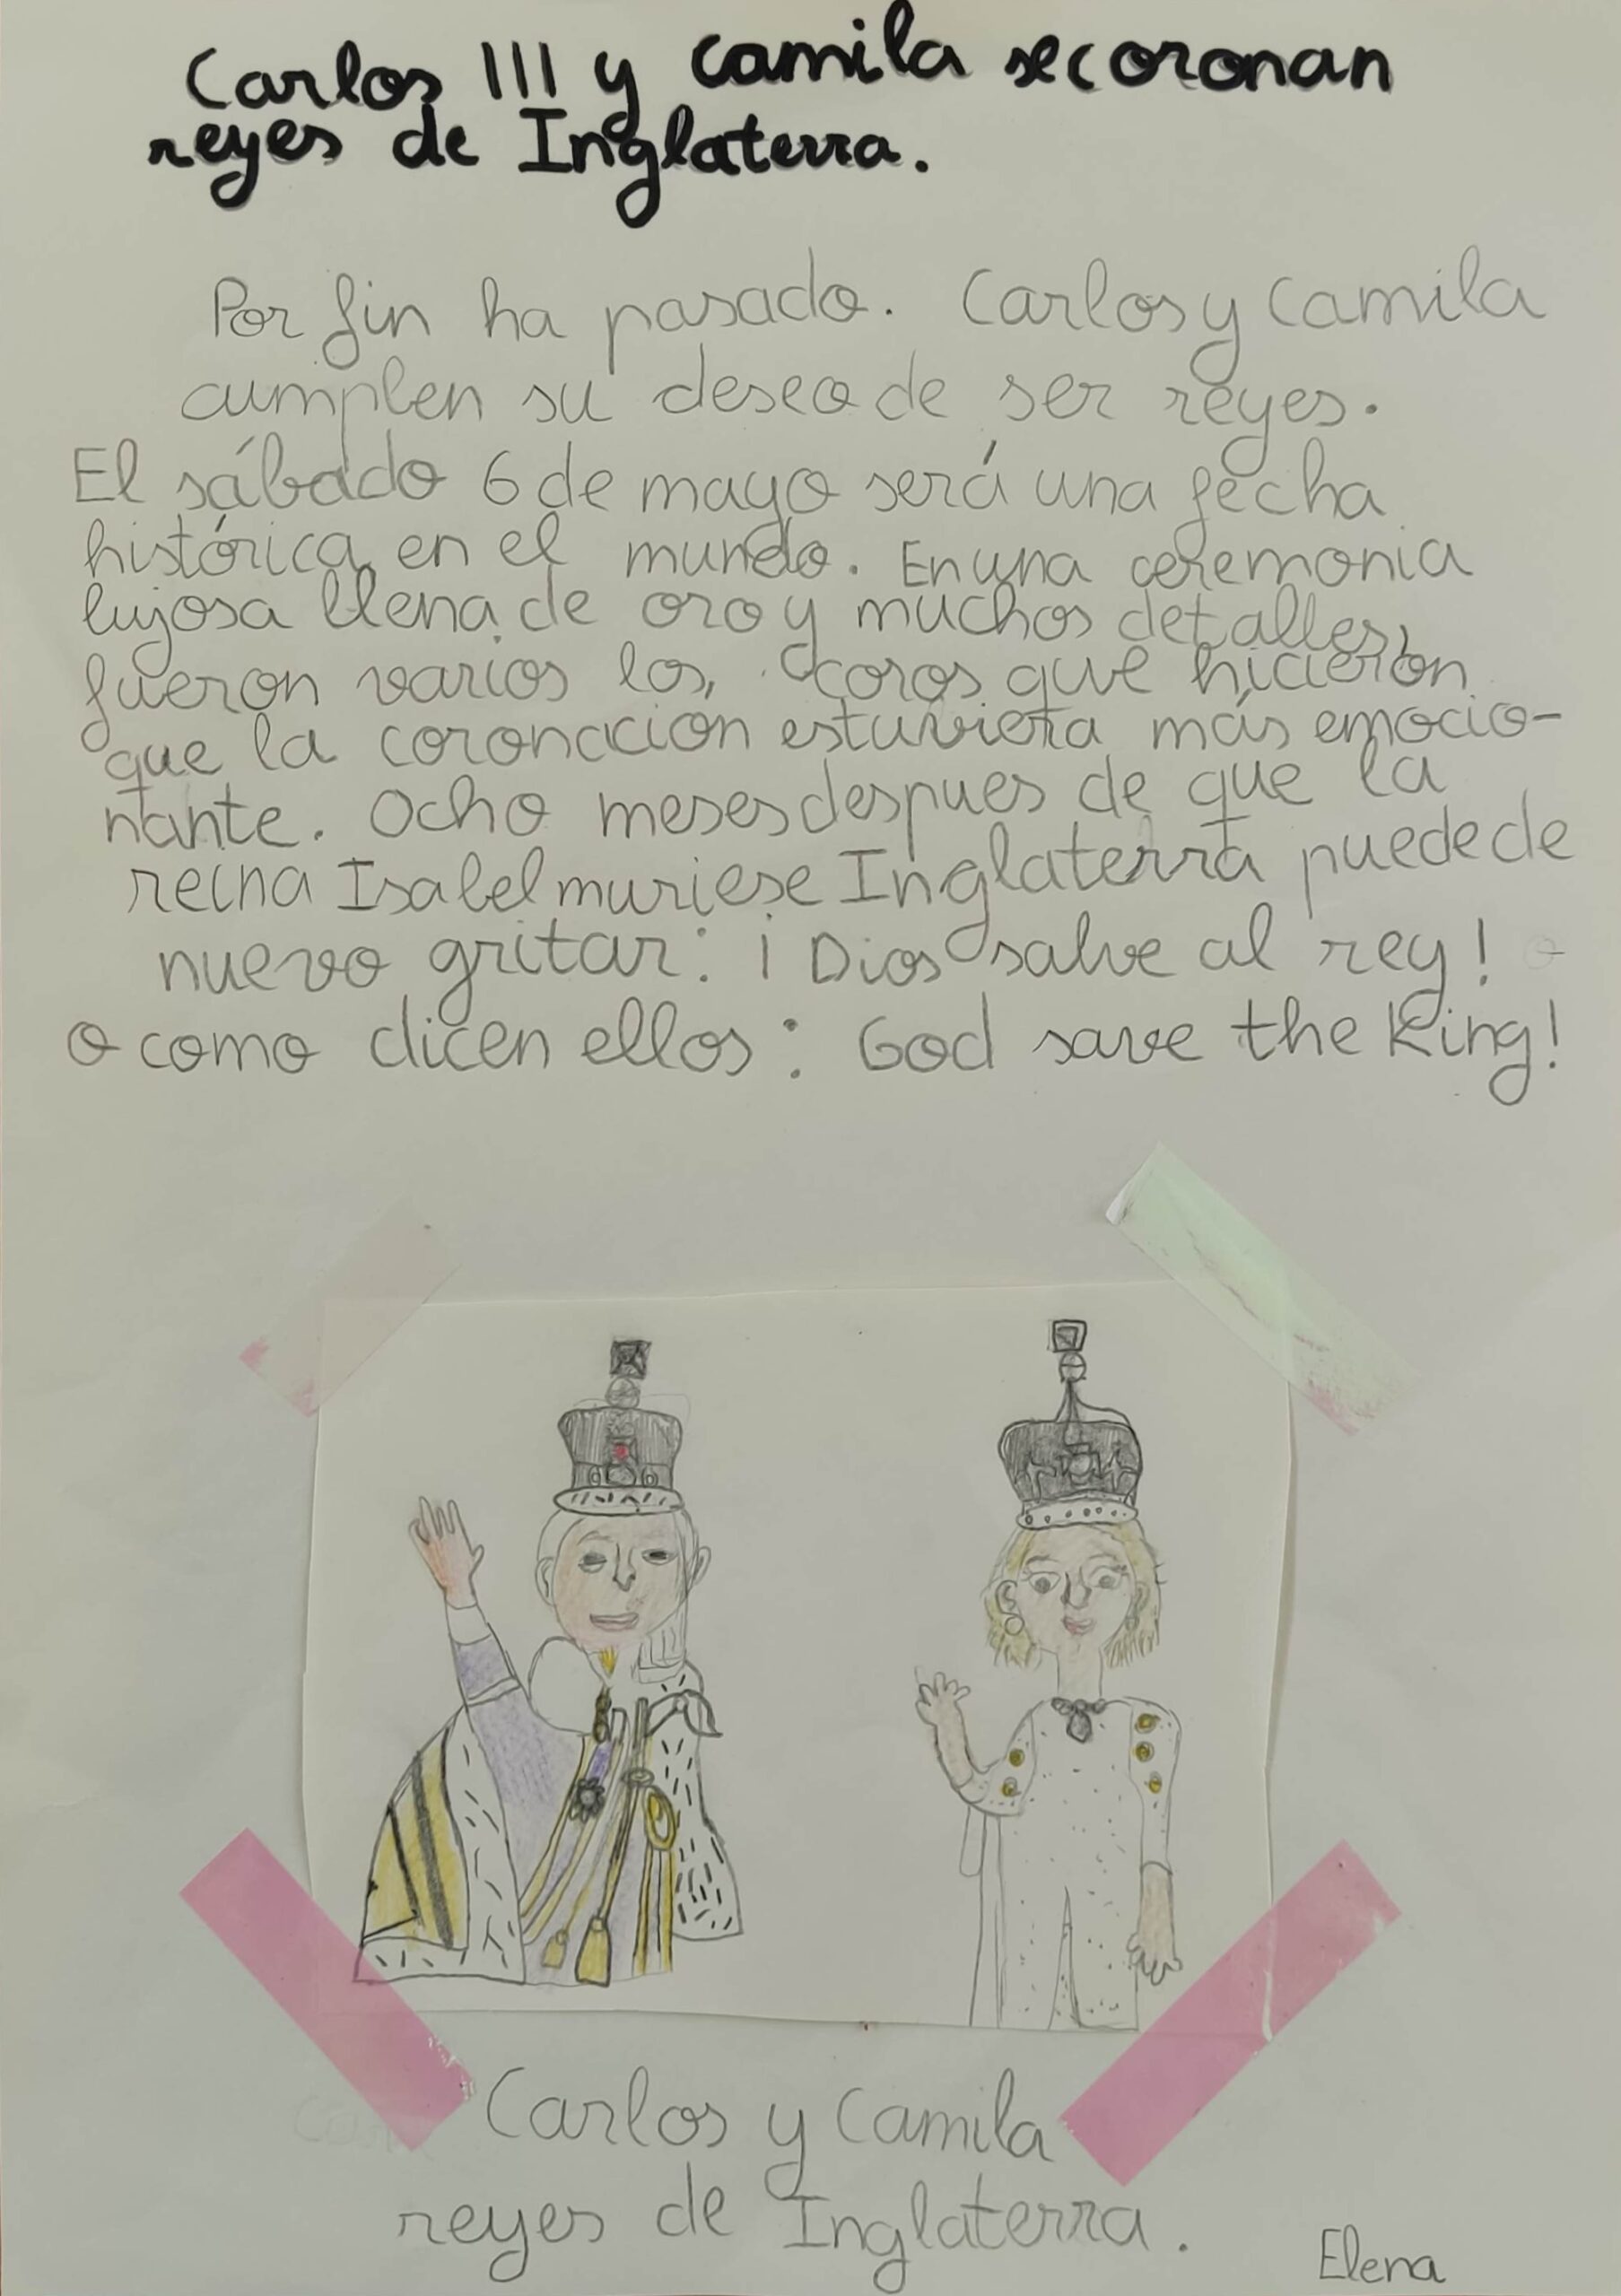 Carlos III y Camila se coronan
reyes de Inglaterra.
Por fin ha pasado. Carlos y Camila
cumplen su deseo de ser reyes.
El sábado 6 de mayo será una fecha
histórica en el mundo. En una ceremonia
lujosa llena de oro y muchos detalles,
fueron varios los, coros que hicieron
que la coronación estuviera más emocio-
nante. Ocho meses despues de que la
reina Isabel muriese Inglaterra puede de
nuevo gritar: ¡Dios salve al rey!
o como dicen ellos: God save the King!
Carlos y Camila
reyes de Inglaterra.
Elena